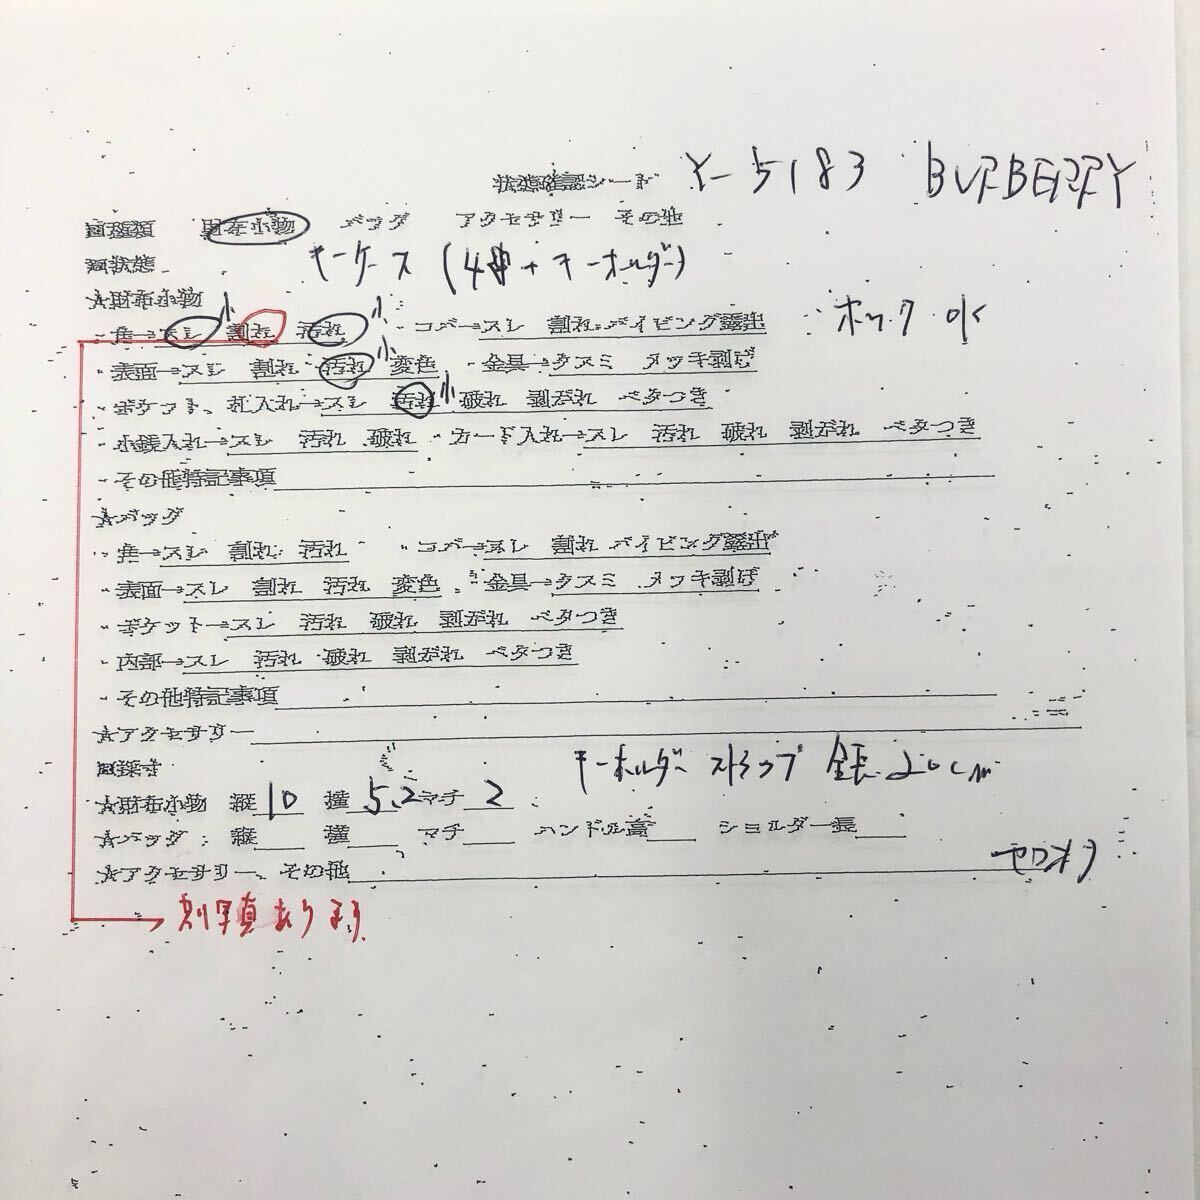 状態確認シート Y-5183 BURBERRY
財布小物 バッグ アクセサリー その他
状態 キーケース (4 + キーホルダー)
☆財布小物
・角→スレ 小 割れ 汚れ 小 ・コバ→スレ 割れ パイピング露出 ホック OK
・表面→スレ 割れ 汚れ 小 変色 ・金具→クスミ メッキ剥げ
・ポケット、札入れ→スレ 汚れ 小 破れ 剥がれ ベタつき
・小銭入れ→スレ 汚れ 破れ ・カード入れ→スレ 汚れ 破れ 剥がれ ベタつき
・その他特記事項
☆バッグ
・角→スレ 割れ 汚れ ・コバ→スレ 割れ パイピング露出
・表面→スレ 割れ 汚れ 変色 ・金具→クスミ メッキ剥げ
・ポケット→スレ 汚れ 破れ 剥がれ ベタつき
・内部→スレ 汚れ 破れ 剥がれ ベタつき
・その他特記事項
☆アクセサリー
採寸 キーホルダー ストラップ 全長 20cm
☆財布小物 縦 10 横 5.2 マチ 2
☆バッグ 縦 横 マチ ハンドル高 ショルダー長
☆アクセサリー、その他
別写真あります